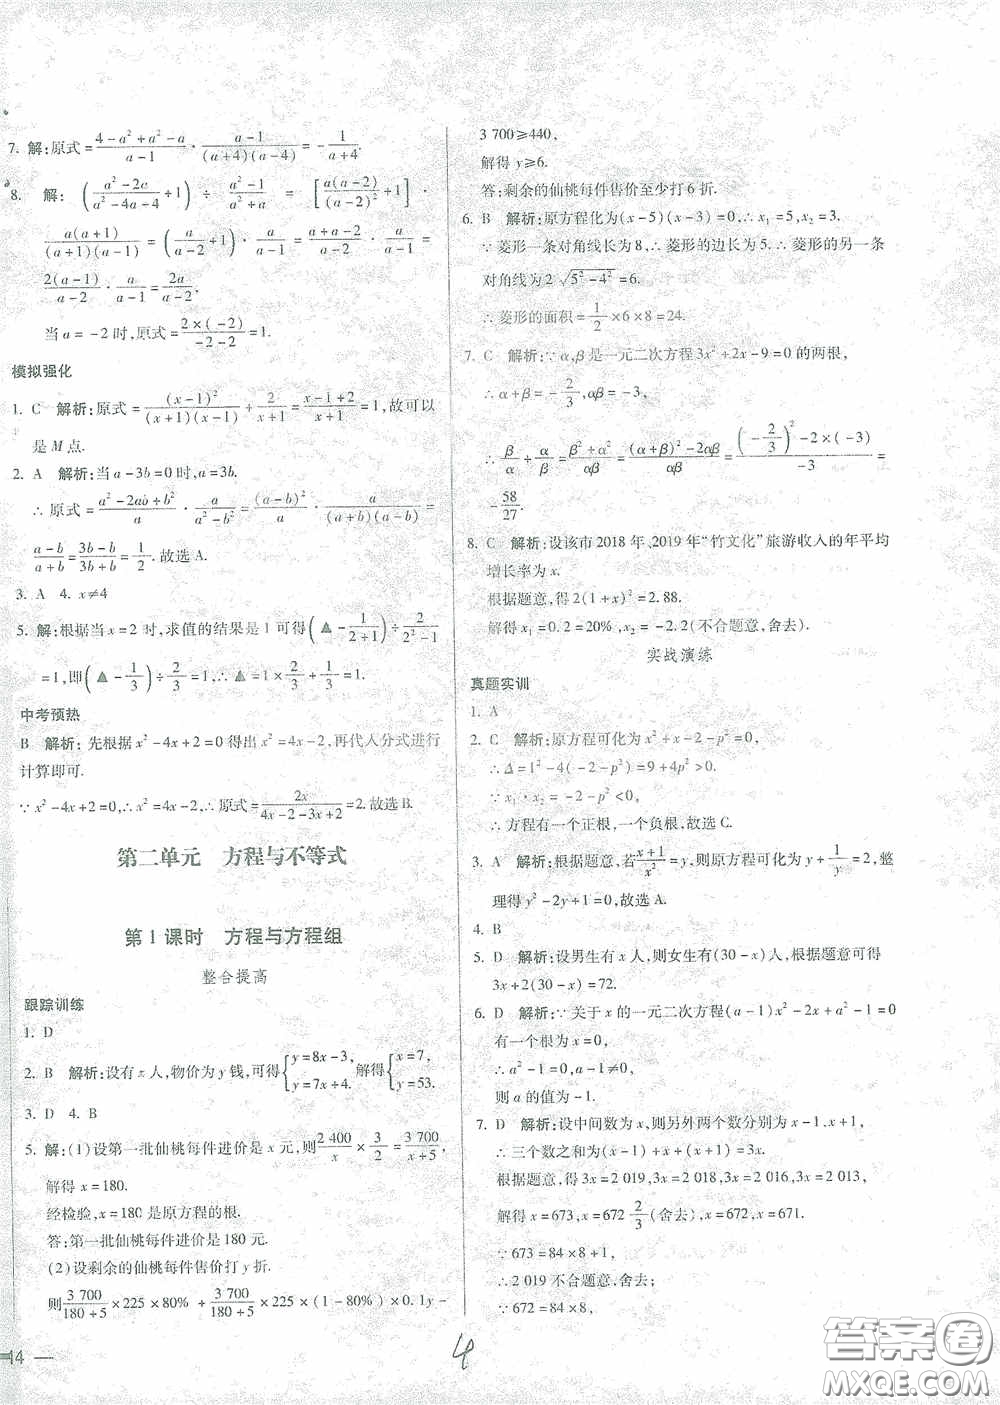 7. 解:原式=\frac{4-a²+a²-a}{a-1}·\frac{a-1}{(a+4)(a-4)}=-\frac{1}{a+4}.
8. 解:(\frac{a²-2a}{a²-4a-4}+1)÷\frac{a²-1}{a²+a}=[\frac{a(a-2)}{(a-2)²}+1]·
\frac{a(a+1)}{(a+1)(a-1)}=(\frac{a}{a-2}+1)·\frac{a}{a-1}=\frac{a+a-2}{a-2}·\frac{a}{a-1}=
\frac{2(a-1)}{a-2}·\frac{a}{a-1}=\frac{2a}{a-2},
当a=-2时,原式=\frac{2×(-2)}{-2-2}=1.
模拟强化
1. C 解析:原式=\frac{(x-1)²}{(x+1)(x-1)}+\frac{2}{x+1}=\frac{x-1+2}{x+1}=1,故可以
是M点.
2. A 解析:当a-3b=0时,a=3b.
∴原式=\frac{a²-2ab+b²}{a}·\frac{a}{a²-b²}=\frac{(a-b)²}{a}·\frac{a}{(a+b)(a-b)}=
\frac{a-b}{a+b}=\frac{3b-b}{3b+b}=\frac{1}{2}.故选A.
3. A 4. x≠4
5. 解:根据当x=2时,求值的结果是1可得(▲-\frac{1}{2+1})÷\frac{2}{2²-1}
=1,即(▲-\frac{1}{3})÷\frac{2}{3}=1,则▲=1×\frac{2}{3}+\frac{1}{3}=1.
中考预热
B 解析:先根据x²-4x+2=0得出x²=4x-2,再代入分式进行
计算即可.
∵x²-4x+2=0,∴x²=4x-2,∴原式=\frac{2x}{4x-2-3x+2}=2.故选B.
第二单元 方程与不等式
第1课时 方程与方程组
整合提高
跟踪训练
1. D
2. B 解析:设有x人,物价为y钱,可得{y=8x-3, y=7x+4. 解得{x=7, y=53.
3. D 4. B
5. 解:(1)设第一批仙桃每件进价是x元,则\frac{2 400}{x}×\frac{3}{2}=\frac{3 700}{x+5},
解得x=180.
经检验,x=180是原方程的根.
答:第一批仙桃每件进价是180元.
(2)设剩余的仙桃每件售价打y折.
则\frac{3 700}{180+5}×225×80%+\frac{3 700}{180+5}×225×(1-80%)×0.1y-
14
3 700≥440,
解得y≥6.
答:剩余的仙桃每件售价至少打6折.
6. B 解析:原方程化为(x-5)(x-3)=0,∴x₁=5,x₂=3.
∵菱形一条对角线长为8,∴菱形的边长为5.∴菱形的另一条
对角线为2\sqrt{5²-4²}=6.
∴菱形的面积=\frac{1}{2}×6×8=24.
7. C 解析:∵α,β是一元二次方程3x²+2x-9=0的两根,
∴α+β=-\frac{2}{3},αβ=-3,
∴\frac{β}{α}+\frac{α}{β}=\frac{β²+α²}{αβ}=\frac{(α+β)²-2αβ}{αβ}=\frac{(-\frac{2}{3})²-2×(-3)}{-3}=
-\frac{58}{27}.
8. C 解析:设该市2018年、2019年“竹文化”旅游收入的年平均
增长率为x.
根据题意,得2(1+x)²=2.88.
解得x₁=0.2=20%,x₂=-2.2(不合题意,舍去).
实战演练
真题实训
1. A
2. C 解析:原方程可化为x²+x-2-p²=0,
∴Δ=1²-4(-2-p²)=9+4p²>0.
∵x₁·x₂=-2-p²<0,
∴方程有一个正根,一个负根.故选C.
3. A 解析:根据题意,若\frac{x+1}{x²}=y,则原方程可化为y+\frac{1}{y}=2,整
理得y²-2y+1=0.故选A.
4. B
5. D 解析:设男生有x人,则女生有(30-x)人,根据题意可得
3x+2(30-x)=72.
6. D 解析:∵关于x的一元二次方程(a-1)x²-2x+a²-1=0
有一个根为x=0,
∴a²-1=0,a-1≠0,
则a的值为-1.
7. D 解析:设中间数为x,则另外两个数分别为x-1,x+1,
∴三个数之和为(x-1)+x+(x+1)=3x.
根据题意,得3x=2 019,3x=2 018,3x=2 016,3x=2 013,
解得x=673,x=672\frac{2}{3}(舍去),x=672,x=671.
∵673=84×8+1,
∴2 019不合题意,舍去;
∵672=84×8,
4
答案圈
MXQE.COM